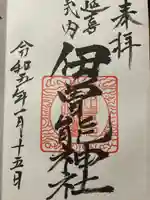 奉拝
延喜式内
伊曽能神社
令和五年一月十五日